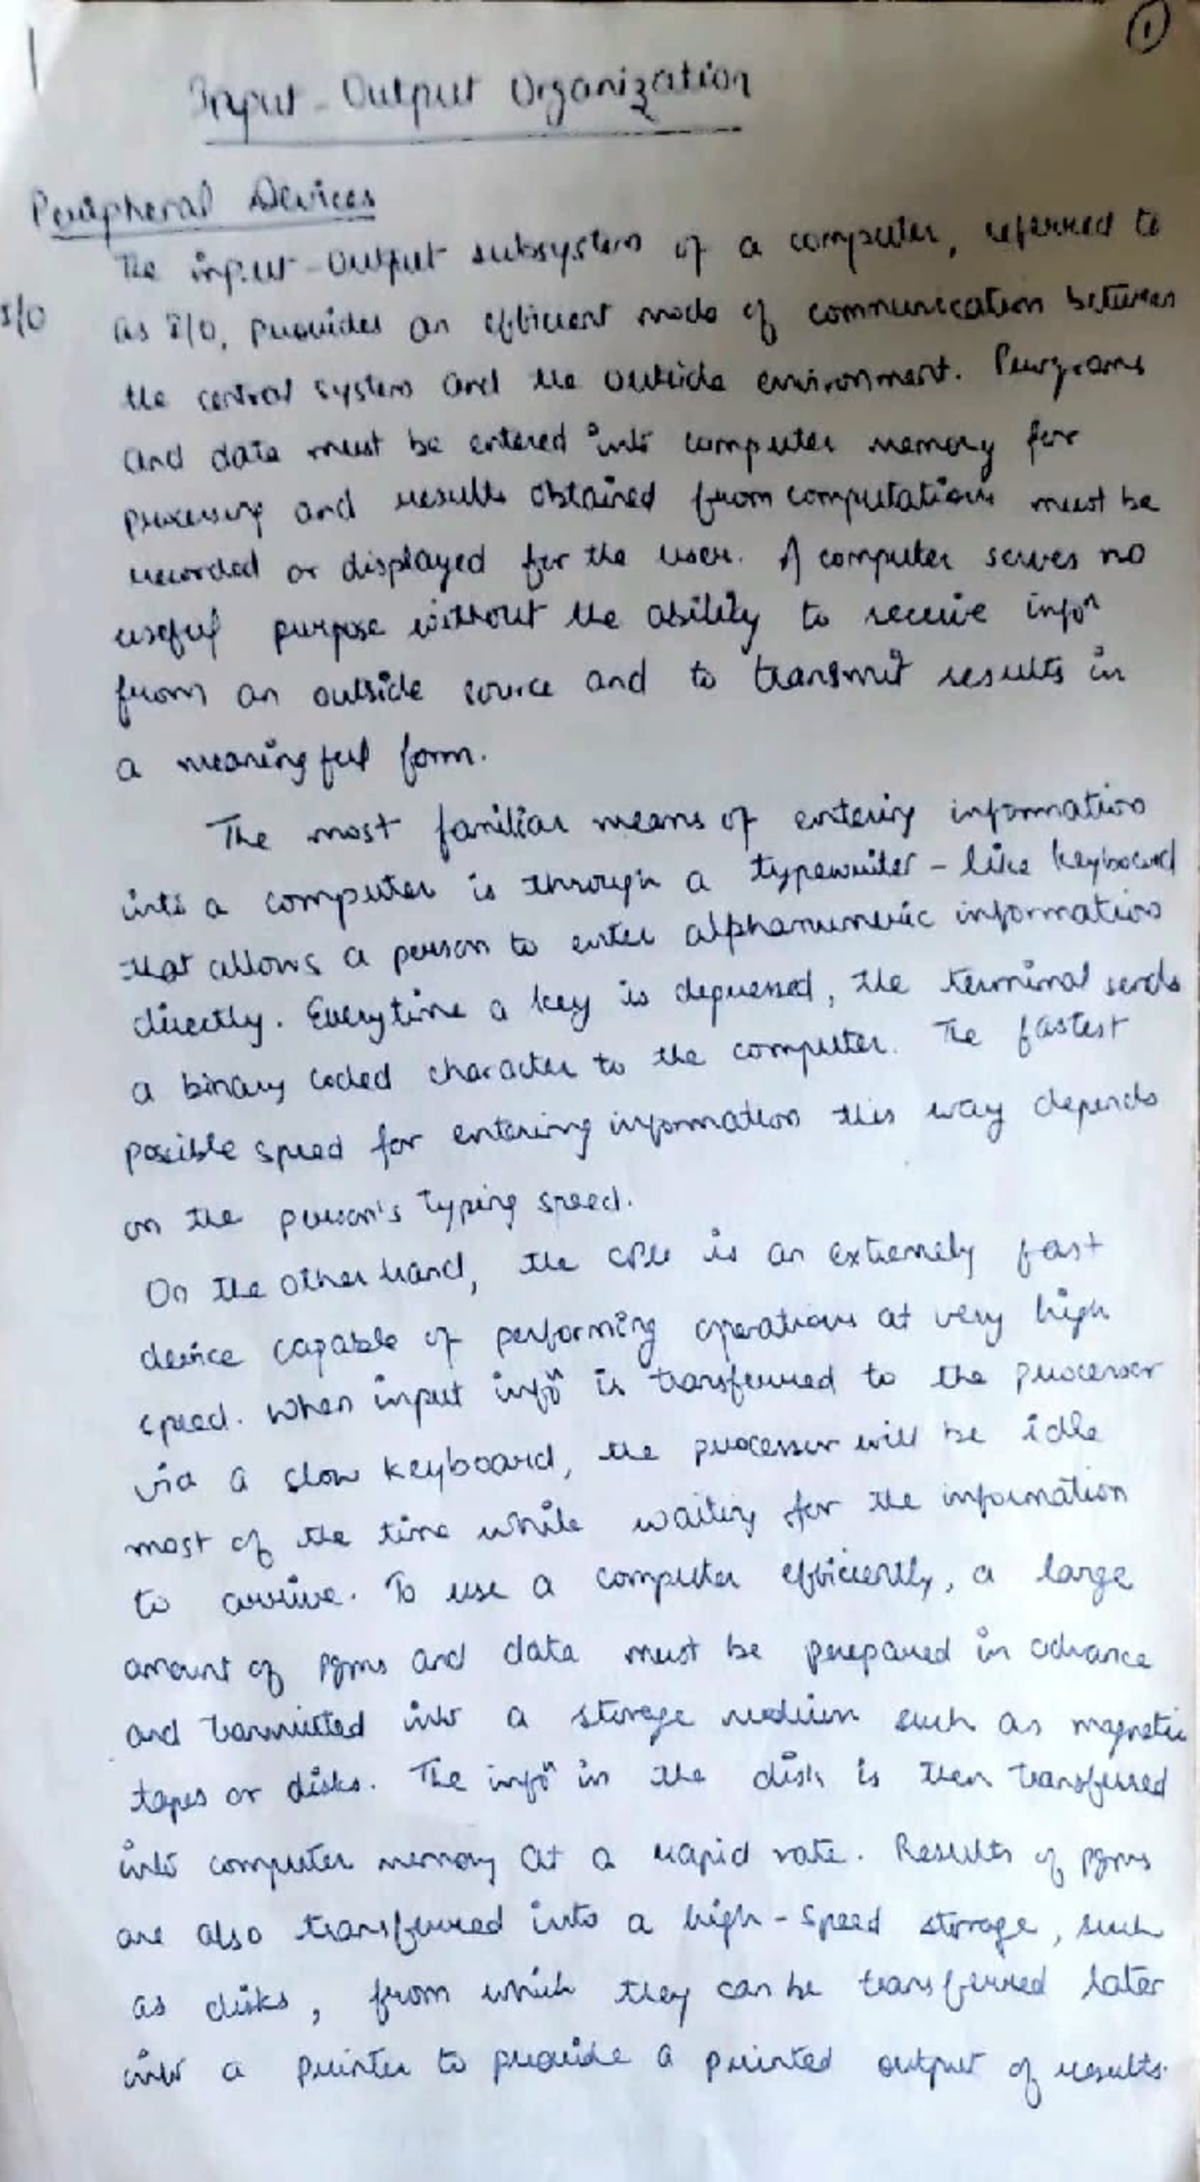 1
Input-Output Organization
Peripheral Devices
The input-output subsystem of a computer, referred to
I/O as I/O, provides an efficient mode of communication between
the central system and the outside environment. Programs
and data must be entered into computer memory for
processing and results obtained from computations must be
recorded or displayed for the user. A computer serves no
useful purpose without the ability to receive infoⁿ
from an outside source and to transmit results in
a meaningful form.
The most familiar means of entering information
into a computer is through a typewriter-like keyboard
that allows a person to enter alphanumeric information
directly. Everytime a key is depressed, the terminal sends
a binary coded character to the computer. The fastest
possible speed for entering information this way depends
on the person's typing speed.
On the other hand, the CPU is an extremely fast
device capable of performing operations at very high
speed. When input infoⁿ is transferred to the processor
via a slow keyboard, the processor will be idle
most of the time while waiting for the information
to arrive. To use a computer efficiently, a large
amount of pgms and data must be prepared in advance
and tansmitted into a storage medium such as magnetic
tapes or disks. The infoⁿ in the disk is then transferred
into computer memory at a rapid rate. Results of pgms
are also transferred into a high-speed storage, such
as disks, from which they can be transferred later
into a printer to provide a printed output of results.